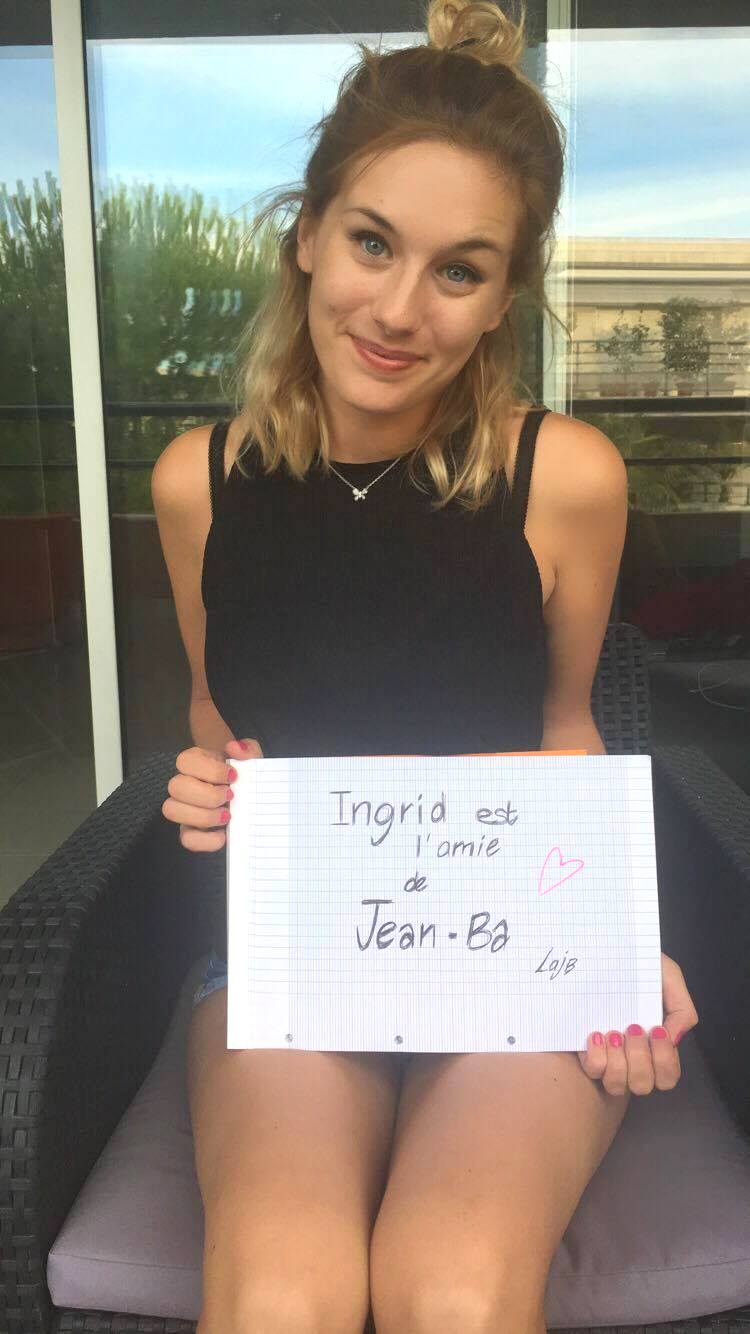 Ingrid est
l'amie
de
Jean-Ba
LajB